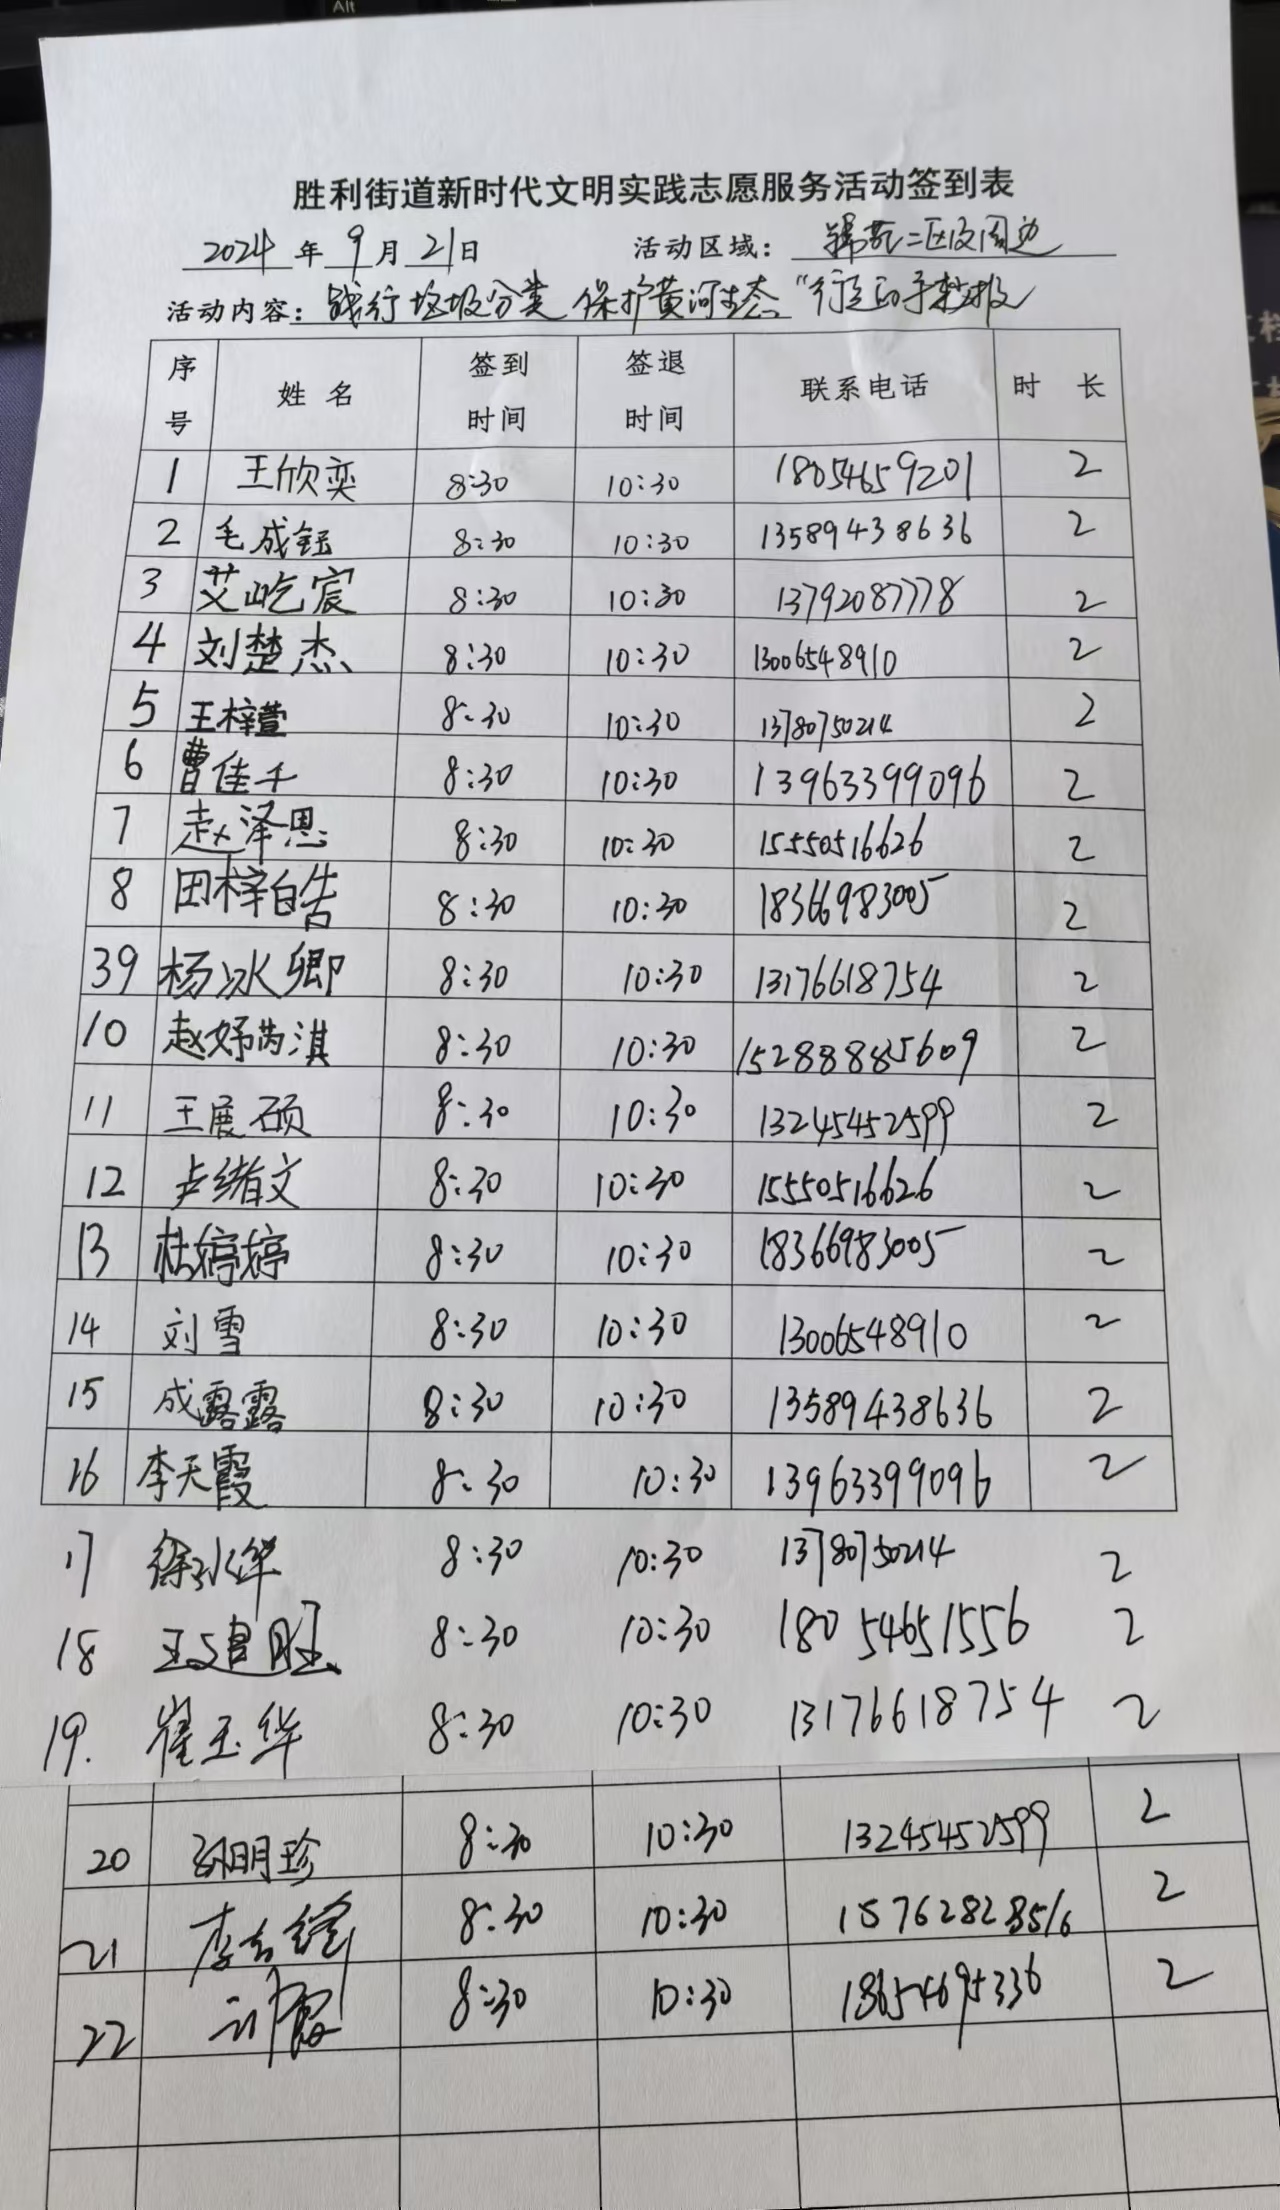 Alt
胜利街道新时代文明实践志愿服务活动签到表
2024 年 9 月 21 日 活动区域: 锦苑二区及周边
活动内容: 践行垃圾分类 保护黄河生态 "行走的手抄报
序号 姓名 签到时间 签退时间 联系电话 时 长
1 王欣奕 8:30 10:30 18054659201 2
2 毛成钰 8:30 10:30 13589438636 2
3 艾屹宸 8:30 10:30 13792087778 2
4 刘楚杰 8:30 10:30 13006548910 2
5 王梓萱 8:30 10:30 13780750214 2
6 曹佳千 8:30 10:30 13963399096 2
7 赵泽恩 8:30 10:30 15550516626 2
8 田梓皓 8:30 10:30 18366983005 2
39 杨冰卿 8:30 10:30 13176618754 2
10 赵妤芮淇 8:30 10:30 15288885609 2
11 王展硕 8:30 10:30 13245452599 2
12 卢绪文 8:30 10:30 15550516626 2
13 杜婷婷 8:30 10:30 18366983005 2
14 刘雪 8:30 10:30 13006548910 2
15 成露露 8:30 10:30 13589438636 2
16 李天霞 8:30 10:30 13963399096 2
17 徐冰华 8:30 10:30 13780750214 2
18 王建旺 8:30 10:30 18054651556 2
19. 崔玉华 8:30 10:30 13176618754 2
20 孙明珍 8:30 10:30 13245452599 2
21 李 8:30 10:30 15762828516 2
22 8:30 10:30 18654695336 2